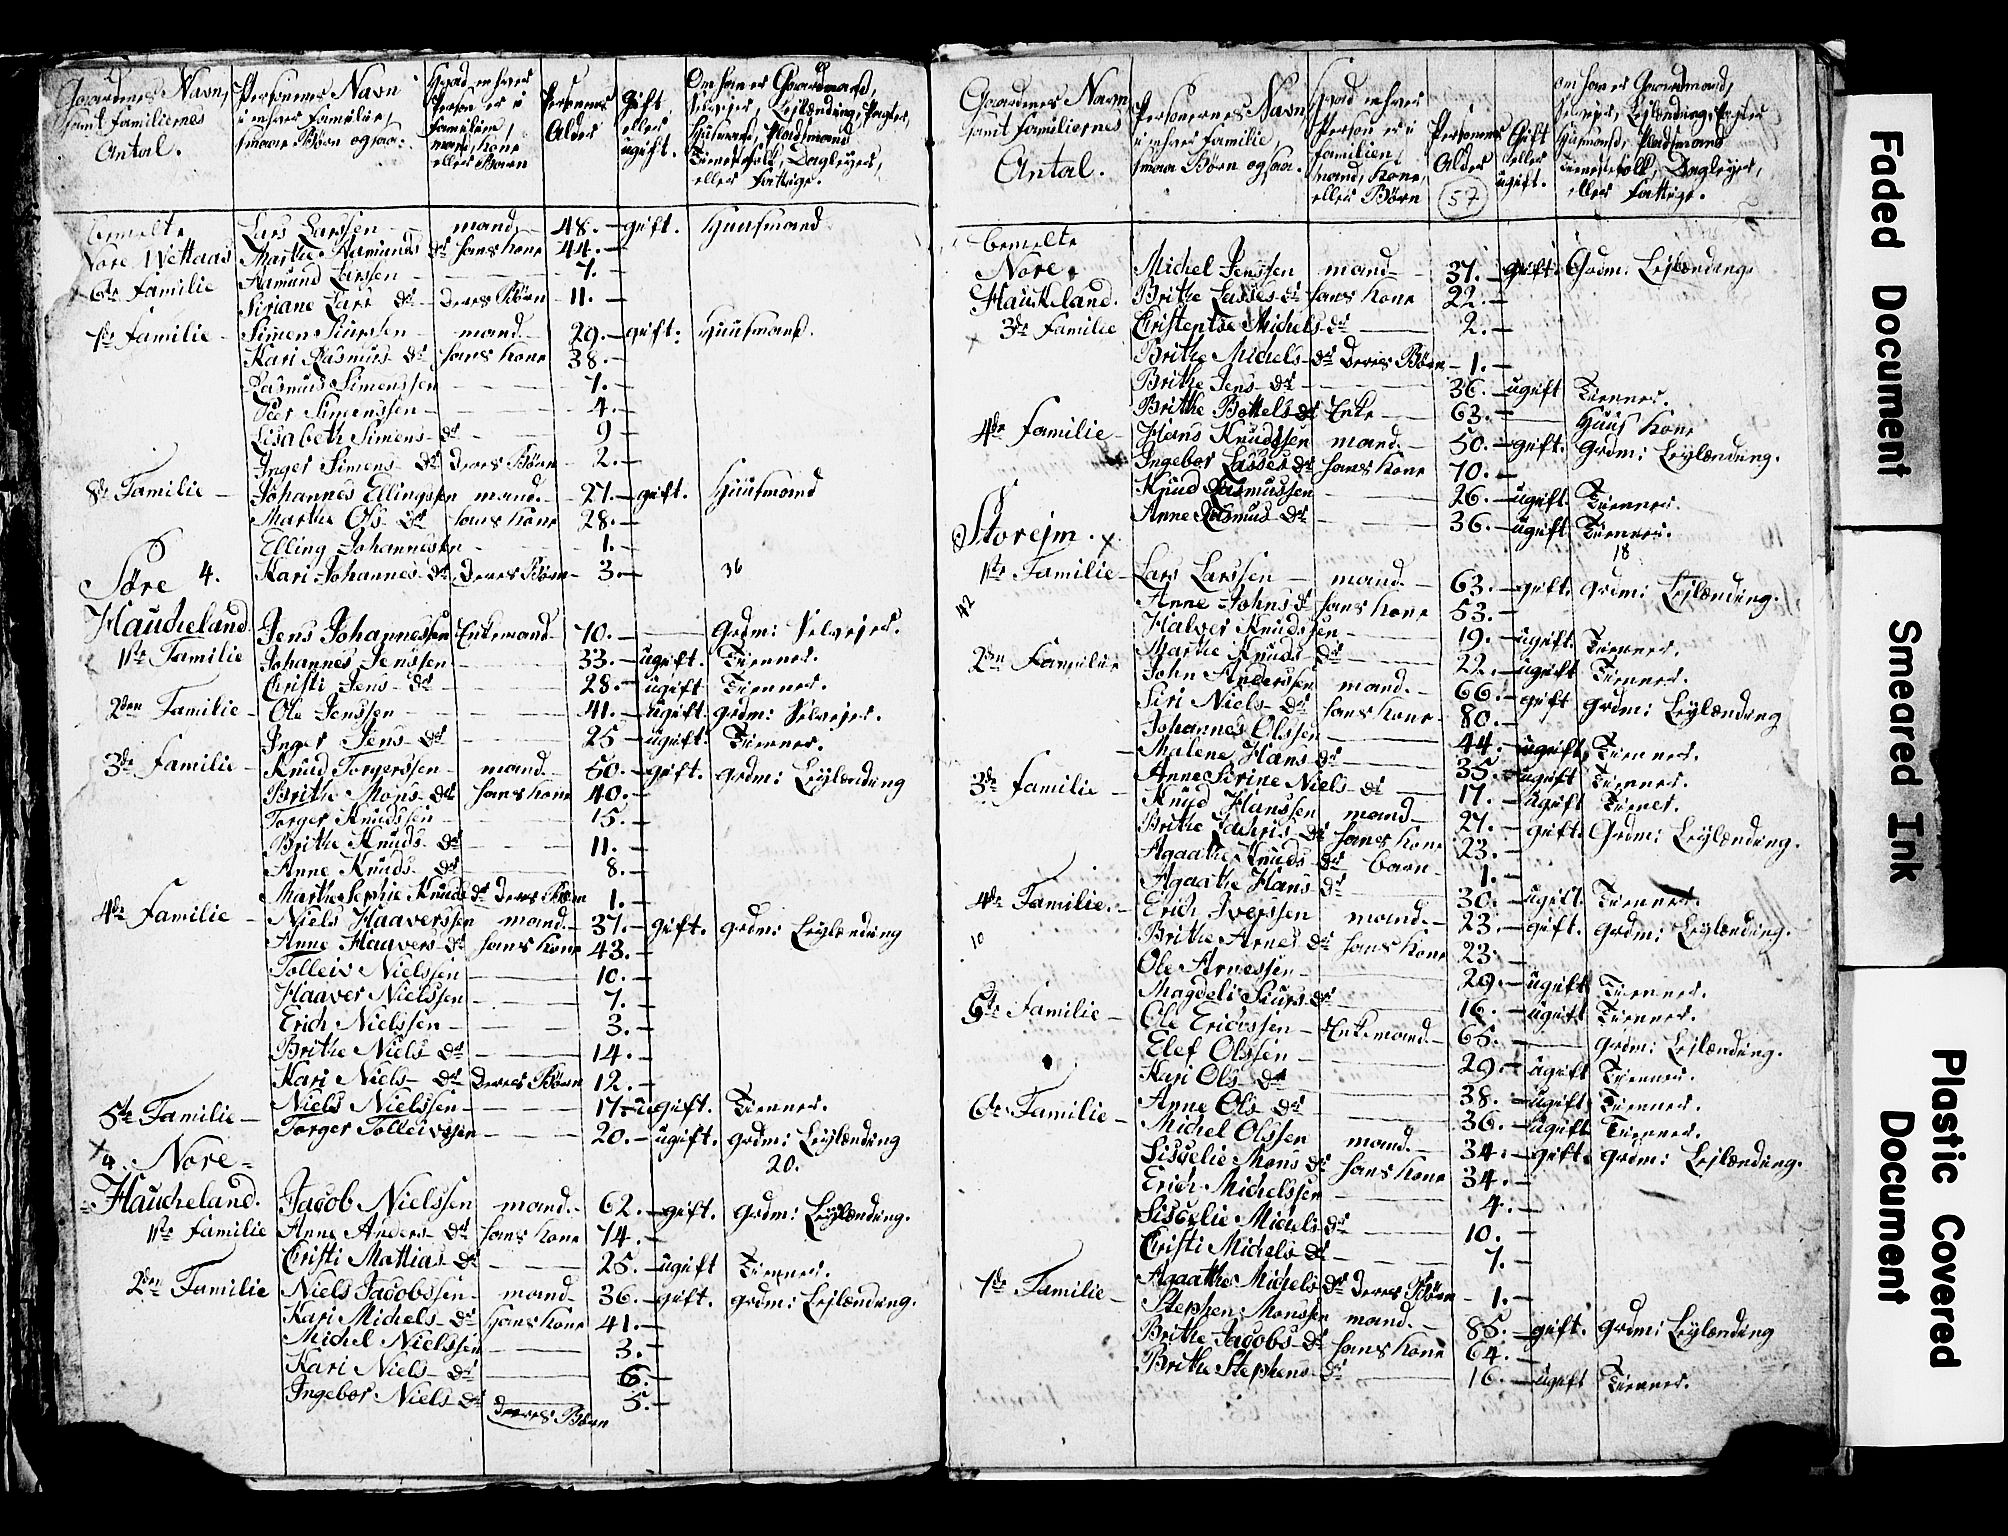 Gaardenes Navn, samt Familiernes Antal.
Personernes Navn i enhver Familie, smaae Børn ogsaa.
Hvad enhver Person er i Familien, mand, Kone eller Barn
Personernes Alder
Gift eller ugift.
Om han er Gaardmand, Selvejer, Lejlænding, Pagter, Huusmand, Pladsmand Tienestefolk, Daglejer, eller Fattige.
bemelte Lars Larssen mand 48. gift. Huusmand
Nore Wettaas Marthe Aamunds dr hans Kone 44.
6te Familie Aamund Larssen 7.
Siriane Lars dr Deres Børn 11.
7de Familie Simen Siurssen mand 29. gift: Huusmand.
Kari Rasmus dr hans Kone 38.
Rasmus Simenssen 7.
Peer Simenssen 4.
Lisabeth Simens dr 9
Inger Simens dr Deres Børn 2.
8de Familie Johannes Ellingssen mand. 27. gift. Huusmand
Marthe Ols dr hans Kone 28.
Elling Johannessen 1.
Søre 4. Kari Johannes dr Deres Børn 3. 36
Haucheland Jens Johannessen Enkemand 70. Grdm: Selvejer.
1ste Familie Johannes Jenssen 33. ugift. Tienner.
Christi Jens dr 28. ugift Tienner.
2den Familie Ole Jenssen 41. ugift. grdm: Selvejer.
Inger Jens dr 25 ugift. Tienner.
3de Familie Knud Torgerssen mand 50. gift. grdm: Lejlænding
Brithe Mons dr hans Kone 40.
Torger Knudssen 15.
Brithe Knuds dr 11.
Anne Knuds dr 8.
Marthe Sophie Knuds dr Deres Børn 1.
4de Familie Niels Haaverssen mand. 37. gift. grdm: Lejlænding
Anne Haavers dr hans Kone 43.
Tolleiv Nielssen 10.
Haaver Nielssen 7.
Erich Nielssen 3.
Brithe Niels dr 14.
Kari Niels dr Deres Børn 12.
Niels Nielssen 17 ugift. Tienner.
5te Familie Torger Tolleivssen 20. ugift. grdm: Lejlænding
x 4. Nore 20.
Haucheland. Jacob Nielssen mand. 62. gift. Grdm: Lejlænding.
1ste Familie Anne Anders dr hans Kone 74.
Christi Mathias dr 25. ugift Tienner.
2den Familie Niels Jacobssen mand 36. gift. grdm: Lejlænding.
Kari Michels dr Hans Kone 41.
Michel Nielssen 3.
Kari Niels dr 6.
Ingebor Niels dr Deres Børn 5.
Gaardenes Navn samt Familiernes Antal.
Personernes Navn, i enhver Familie, smaa Børn ogsaa.
Hvad enhver Person er i Familien, mand, Kone, eller Børn
Personernes Alder
57
Gift eller ugift.
om han er Gaardmand, Selvejer, Lejlænding, Pagter Huusmand, Pladsmand Tienestefolk, Daglejer, eller Fattige.
bemelte
Nore Michel Jenssen mand 37. gift. Grdm: Lejlænding
Hauckeland. Brithe Lasses dr hans Kone 22.
3de Familie Christentse Michels dr 2.
x Brithe Michels dr Deres Børn 1.
Brithe Jens dr 36. ugift Tienner.
Brithe Bottels dr Enke 63. Huus Kone
4de Familie Hans Knudssen mand. 50. gift. Grdm: Lejlænding.
Ingebor Lasses dr hans Kone 70.
Knud Rasmussen 26. ugift Tienner.
Anne Rasmus dr 36. ugift Tienner.
Storejm. x 18
1ste Familie Lars Larssen mand 63. gift. Grdm: Lejlænding.
42 Anne Johns dr hans Kone 53.
Halver Knudssen 19. ugift. Tienner.
Marthe Knuds dr 22. ugift Tienner.
2den Familie John Anderssen mand. 66. gift grdm: Lejlænding
Siri Niels dr hans Kone 80.
Johannes Olssen 44. ugift. Tienner.
Malene Hans dr 35. ugift Tienner.
Anne Serine Niels dr 17. ugift Tiener.
3de Familie Knud Hanssen mand 27. gift. Grdm: Lejlænding.
Brithe Zachris dr hans Kone 23.
Agaathe Knuds dr barn 1.
Agaathe Hans dr 30. ugift. Tienner.
4de Familie. Erich Iverssen mand. 23. gift. grdm: Lejlænding.
10 Brithe Arnes dr hans Kone 23.
Ole Arnessen 29. ugift Tienner.
Magdeli Siurs dr 16. ugift Tienner.
5te Familie Ole Ericssen Enkemand. 65. grdm: Lejlænding.
Elef Olssen 29. ugift Tienner.
Kari Ols dr 38. ugift. Tienner.
Anne Ols dr 36. ugift Tienner.
6te Familie Michel Olssen mand. 34. gift. grdm: Lejlænding.
Siscelie Mons dr hans Kone 34.
Erich Michelssen 4.
Siscelie Michels dr 10.
Christi Michels dr 7.
Agaathe Michels dr Deres Børn 1.
7de Familie Stephen Monssen mand. 85. gift. grdm: Lejlænding
Brithe Jacobs dr hans Kone 64.
Brithe Stephens dr 16. ugift Tienner.
Faded Document
Smeared Ink
Plastic Covered Document